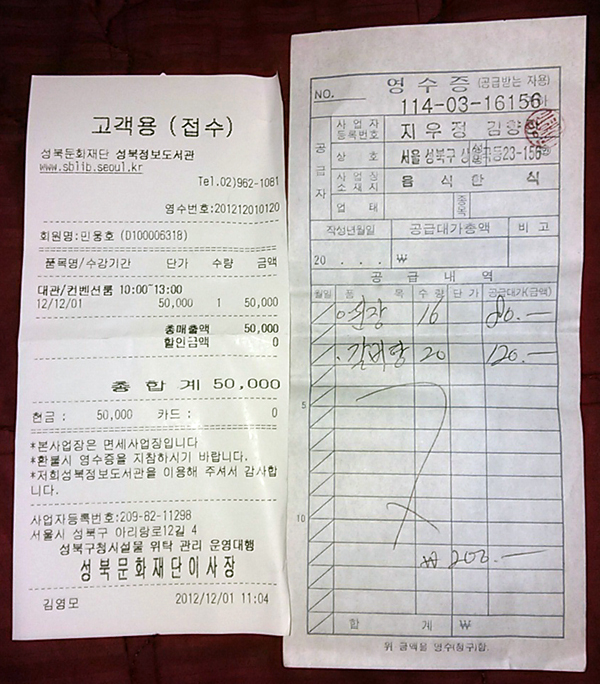 고객용 (접수)
성북문화재단 성북정보도서관
www.sblib.seoul.kr
Tel.02)962-1081
영수번호:201212010120
회원명:민웅호 (D100006318)
품목명/수강기간 단가 수량 금액
대관/컨벤션룸 10:00~13:00
12/12/01 50,000 1 50,000
총매출액 50,000
할인금액 0
총 합 계 50,000
현금 : 50,000 카드 : 0
*본사업장은 면세사업장입니다
*환불시 영수증을 지참하시기 바랍니다.
*저희성북정보도서관을 이용해 주셔서 감사합
니다.
사업자등록번호:209-82-11298
서울시 성북구 아리랑로12길 4
성북구청시설물 위탁 관리 운영대행
성북문화재단이사장
김영모 2012/12/01 11:04
NO. 영 수 증 (공급받는 자용)
114-03-16156
공급자
사업자등록번호 지우정 김향
상 호 서울 성북구 23-156
사업장소재지 음 식 한 식
업 태 종목
작성년월일 공급대가총액 비 고
20 . . . ₩
공 급 내 역
월일 품 목 수 량 단 가 공급대가(금액)
16 80.—
갈비탕 20 120.—
5
10
₩ 200.—
합 계 ₩
위 금액을 영수(청구)함.